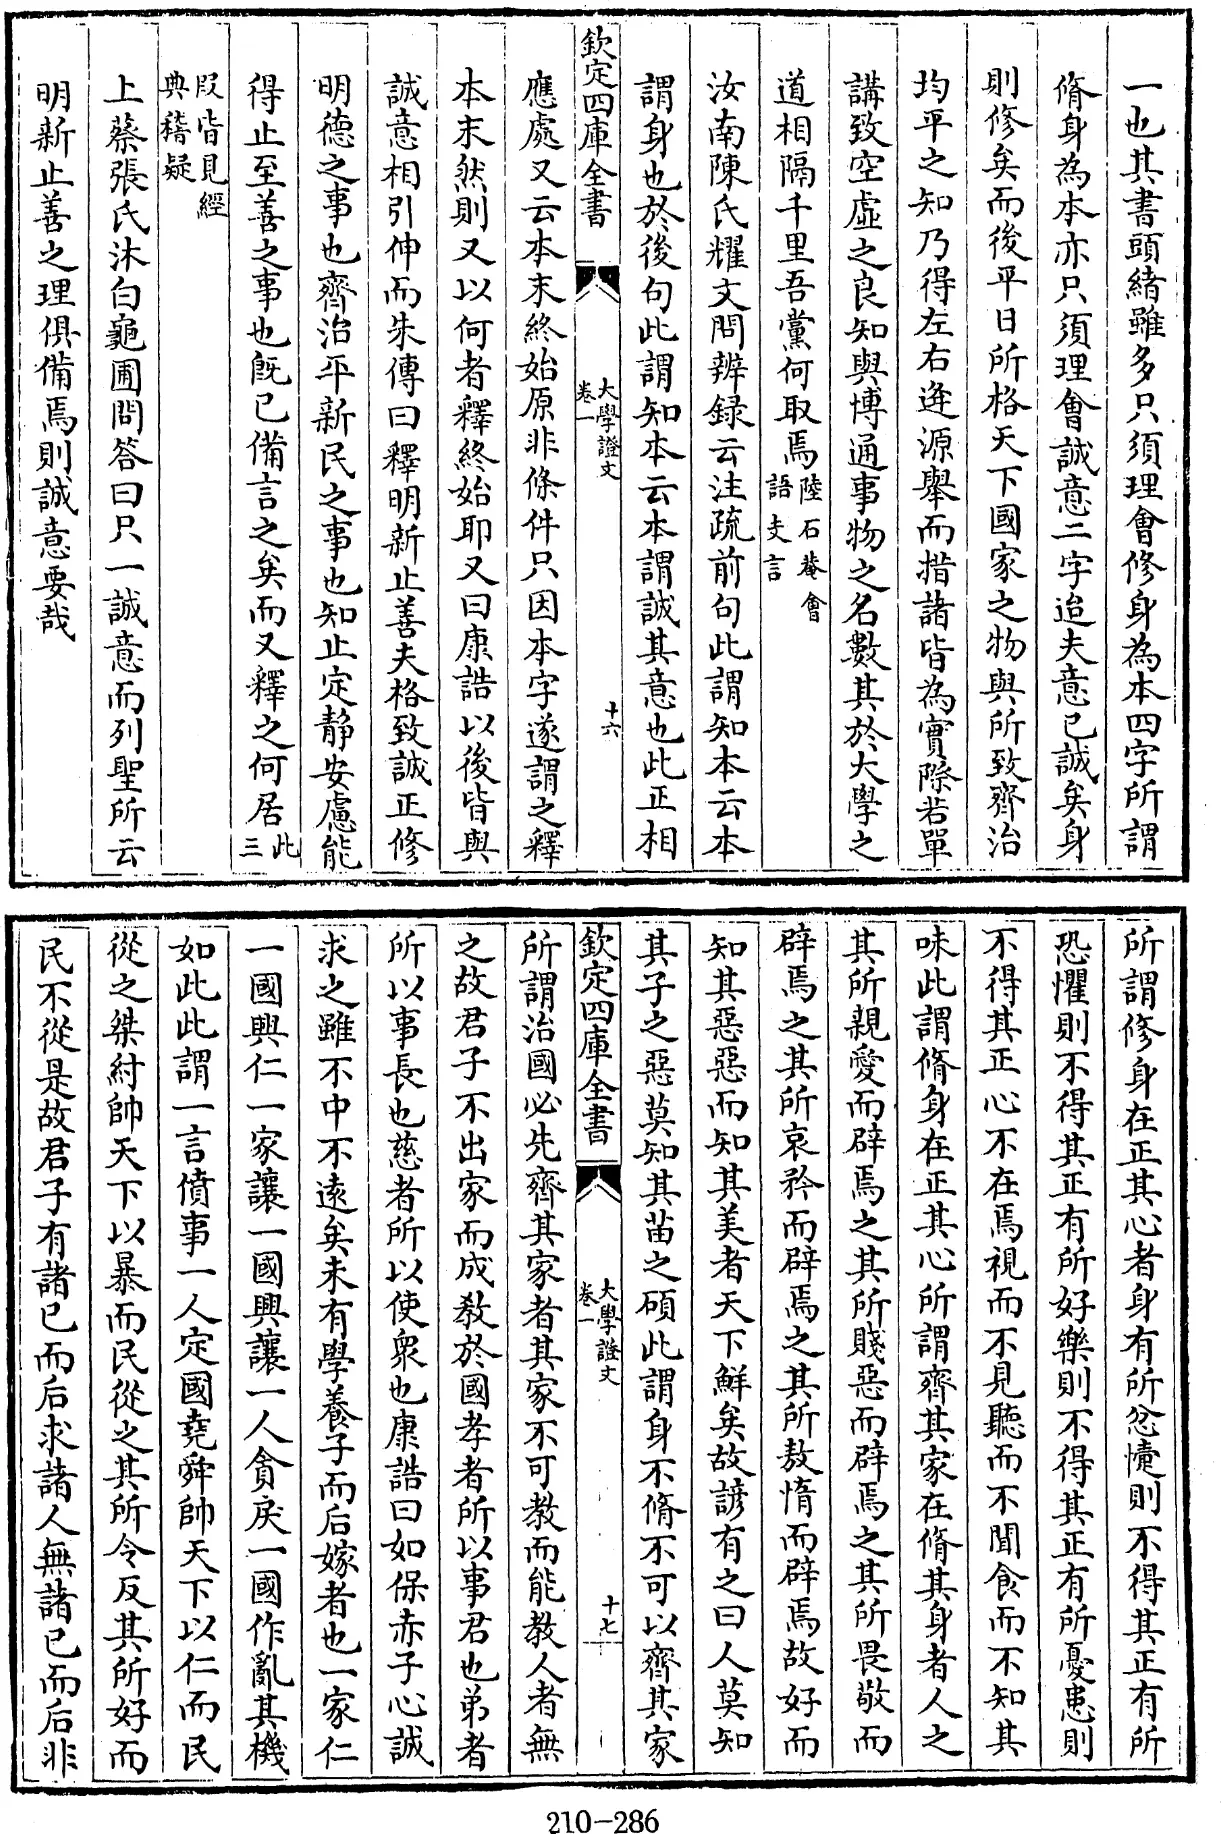 一也其書頭緒雖多只須理會修身為本四字所謂
脩身為本亦只須理會誠意二字迨夫意已誠矣身
則修矣而後平日所格天下國家之物與所致齊治
均平之知乃得左右逢源舉而措諸皆為實際若單
講致空虛之良知與博通事物之名數其於大學之
道相隔千里吾黨何取焉陸石菴會
語支言
汝南陳氏耀文問辨録云注疏前句此謂知本云本
謂身也於後句此謂知本云本謂誠其意也此正相
欽定四庫全書
大學證文
卷一
十六
應處又云本末終始原非條件只因本字遂謂之釋
本末然則又以何者釋終始耶又曰康誥以後皆與
誠意相引伸而朱傳曰釋明新止善夫格致誠正修
明德之事也齊治平新民之事也知止定靜安慮能
得止至善之事也既已備言之矣而又釋之何居此
三
段皆見經
典稽疑
上蔡張氏沐白龜圃問答曰只一誠意而列聖所云
明新止善之理俱備焉則誠意要哉
所謂修身在正其心者身有所忿懥則不得其正有所
恐懼則不得其正有所好樂則不得其正有所憂患則
不得其正心不在焉視而不見聽而不聞食而不知其
味此謂脩身在正其心所謂齊其家在脩其身者人之
其所親愛而辟焉之其所賤惡而辟焉之其所畏敬而
辟焉之其所哀矜而辟焉之其所敖惰而辟焉故好而
知其惡惡而知其美者天下鮮矣故諺有之曰人莫知
其子之惡莫知其苗之碩此謂身不脩不可以齊其家
欽定四庫全書
大學證文
卷一
十七
所謂治國必先齊其家者其家不可教而能教人者無
之故君子不出家而成教於國孝者所以事君也弟者
所以事長也慈者所以使衆也康誥曰如保赤子心誠
求之雖不中不遠矣未有學養子而后嫁者也一家仁
一國興仁一家讓一國興讓一人貪戾一國作亂其機
如此此謂一言僨事一人定國堯舜帥天下以仁而民
從之桀紂帥天下以暴而民從之其所令反其所好而
民不從是故君子有諸已而后求諸人無諸已而后非
210-286